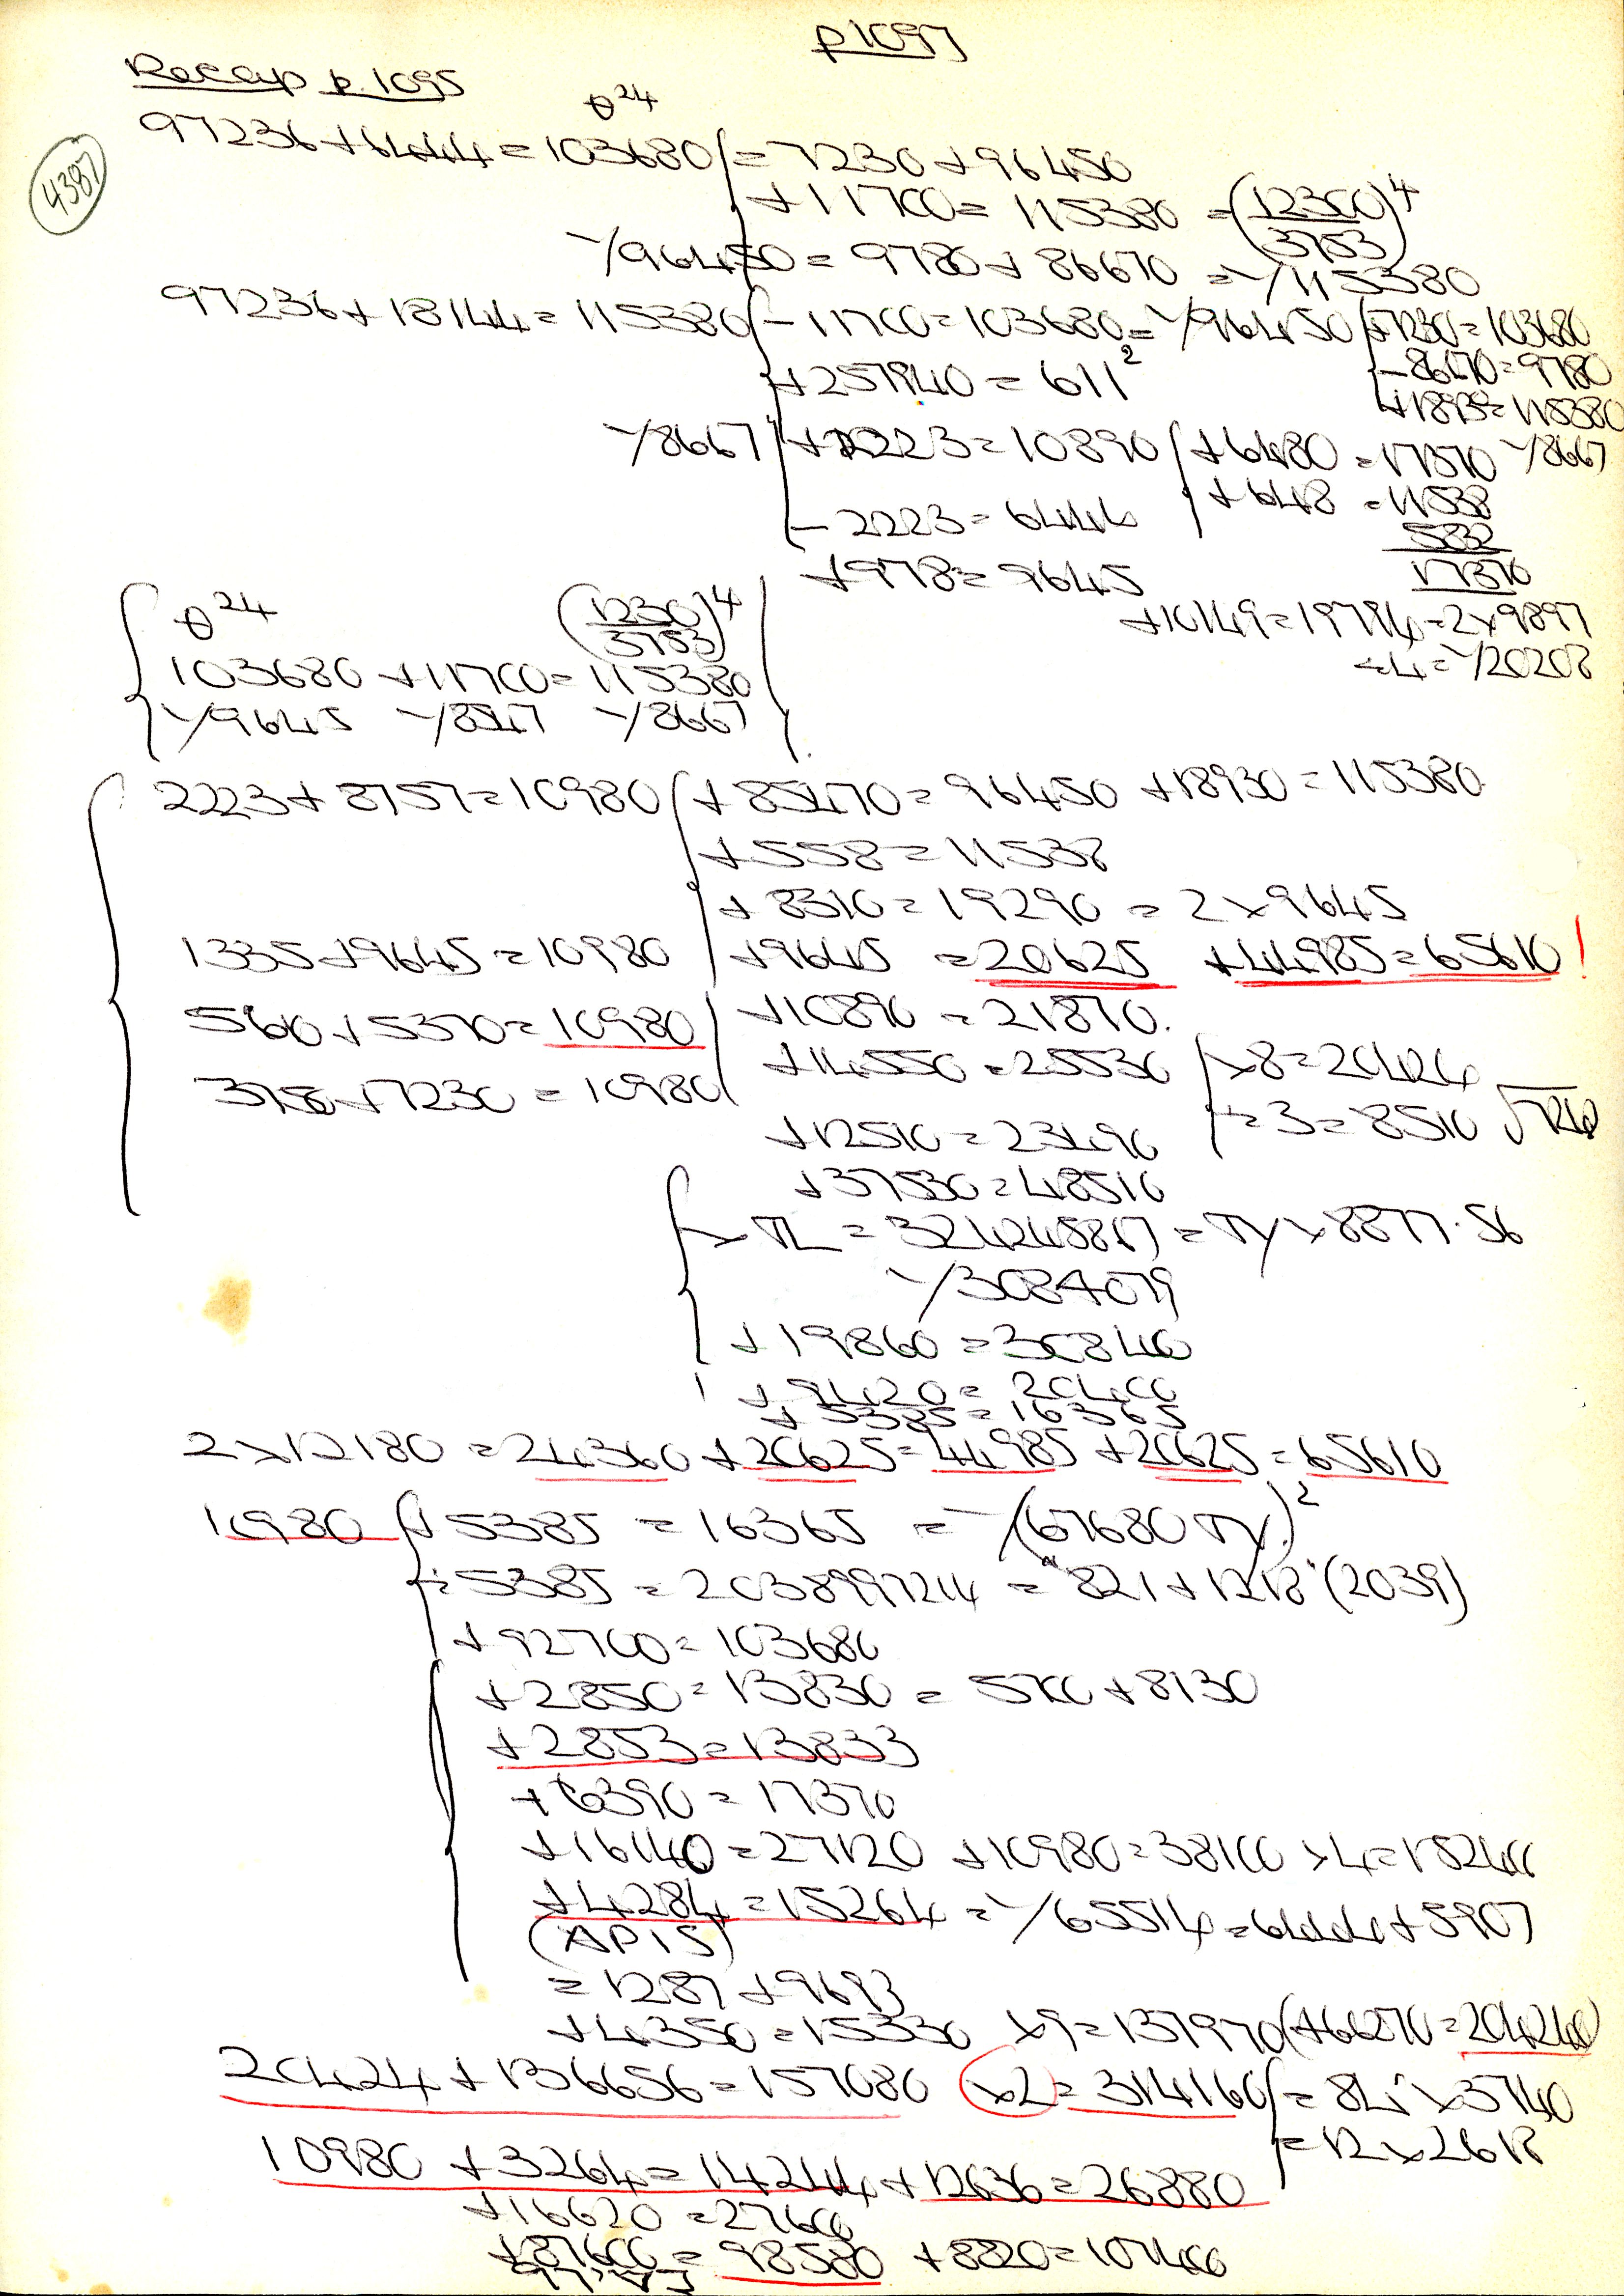 p1097
Recap p.1095
θ²⁴
4387
97236+6444=103680 = 7230+96450
+11700=115380 = (12300/3753)⁴
Y96450 = 9780+86670 = Y115380
97236+18144=115380 -11700=103680=Y96450 +7230=103680
-86670=9780
+257940=611²
+18930=115380
Y8667 +2223=10890 +6480=17370 Y8667
+648=11538
-2223=6444
5832
17370
+978=9645
+10149=19794=2×9897
÷4=Y20208
θ²⁴ (1230/3753)⁴
103680+11700=115380
Y9645 Y8547 Y8667
2223+8757=10980 +85470=96450 +18930=115380
+558=11538
+8310=19290=2×9645
1335+9645=10980 +9645=20625 +44985=65610!
5610+5370=10980 +10890=21870.
+14550=25530 ×8=20424
3750+7230=10980 ÷3=8510
+12510=23490
+37530=48510
Y3084079
+19860=30840
+9420=20400
+5385=16365
2×12180=24360+20625=44985+20625=65610
10980 +5385=16365
÷5385=2038997214="821+1218"(2039)
+92700=103680
+2850=13830=5700+8130
+2853=13833
+6390=17370
+16140=27120 +10980=38100 ×4=152400
+4284=15264=Y65514=6444+5907
(APIS)
=1287+9693
+4350=15330 ×9=137970(+66270=204240)
20424+136656=157080 ×2=314160=84×3740
=12×2618
10980+3264=14244+12636=26880
+16620=27600
+87600=98580 +8820=107400